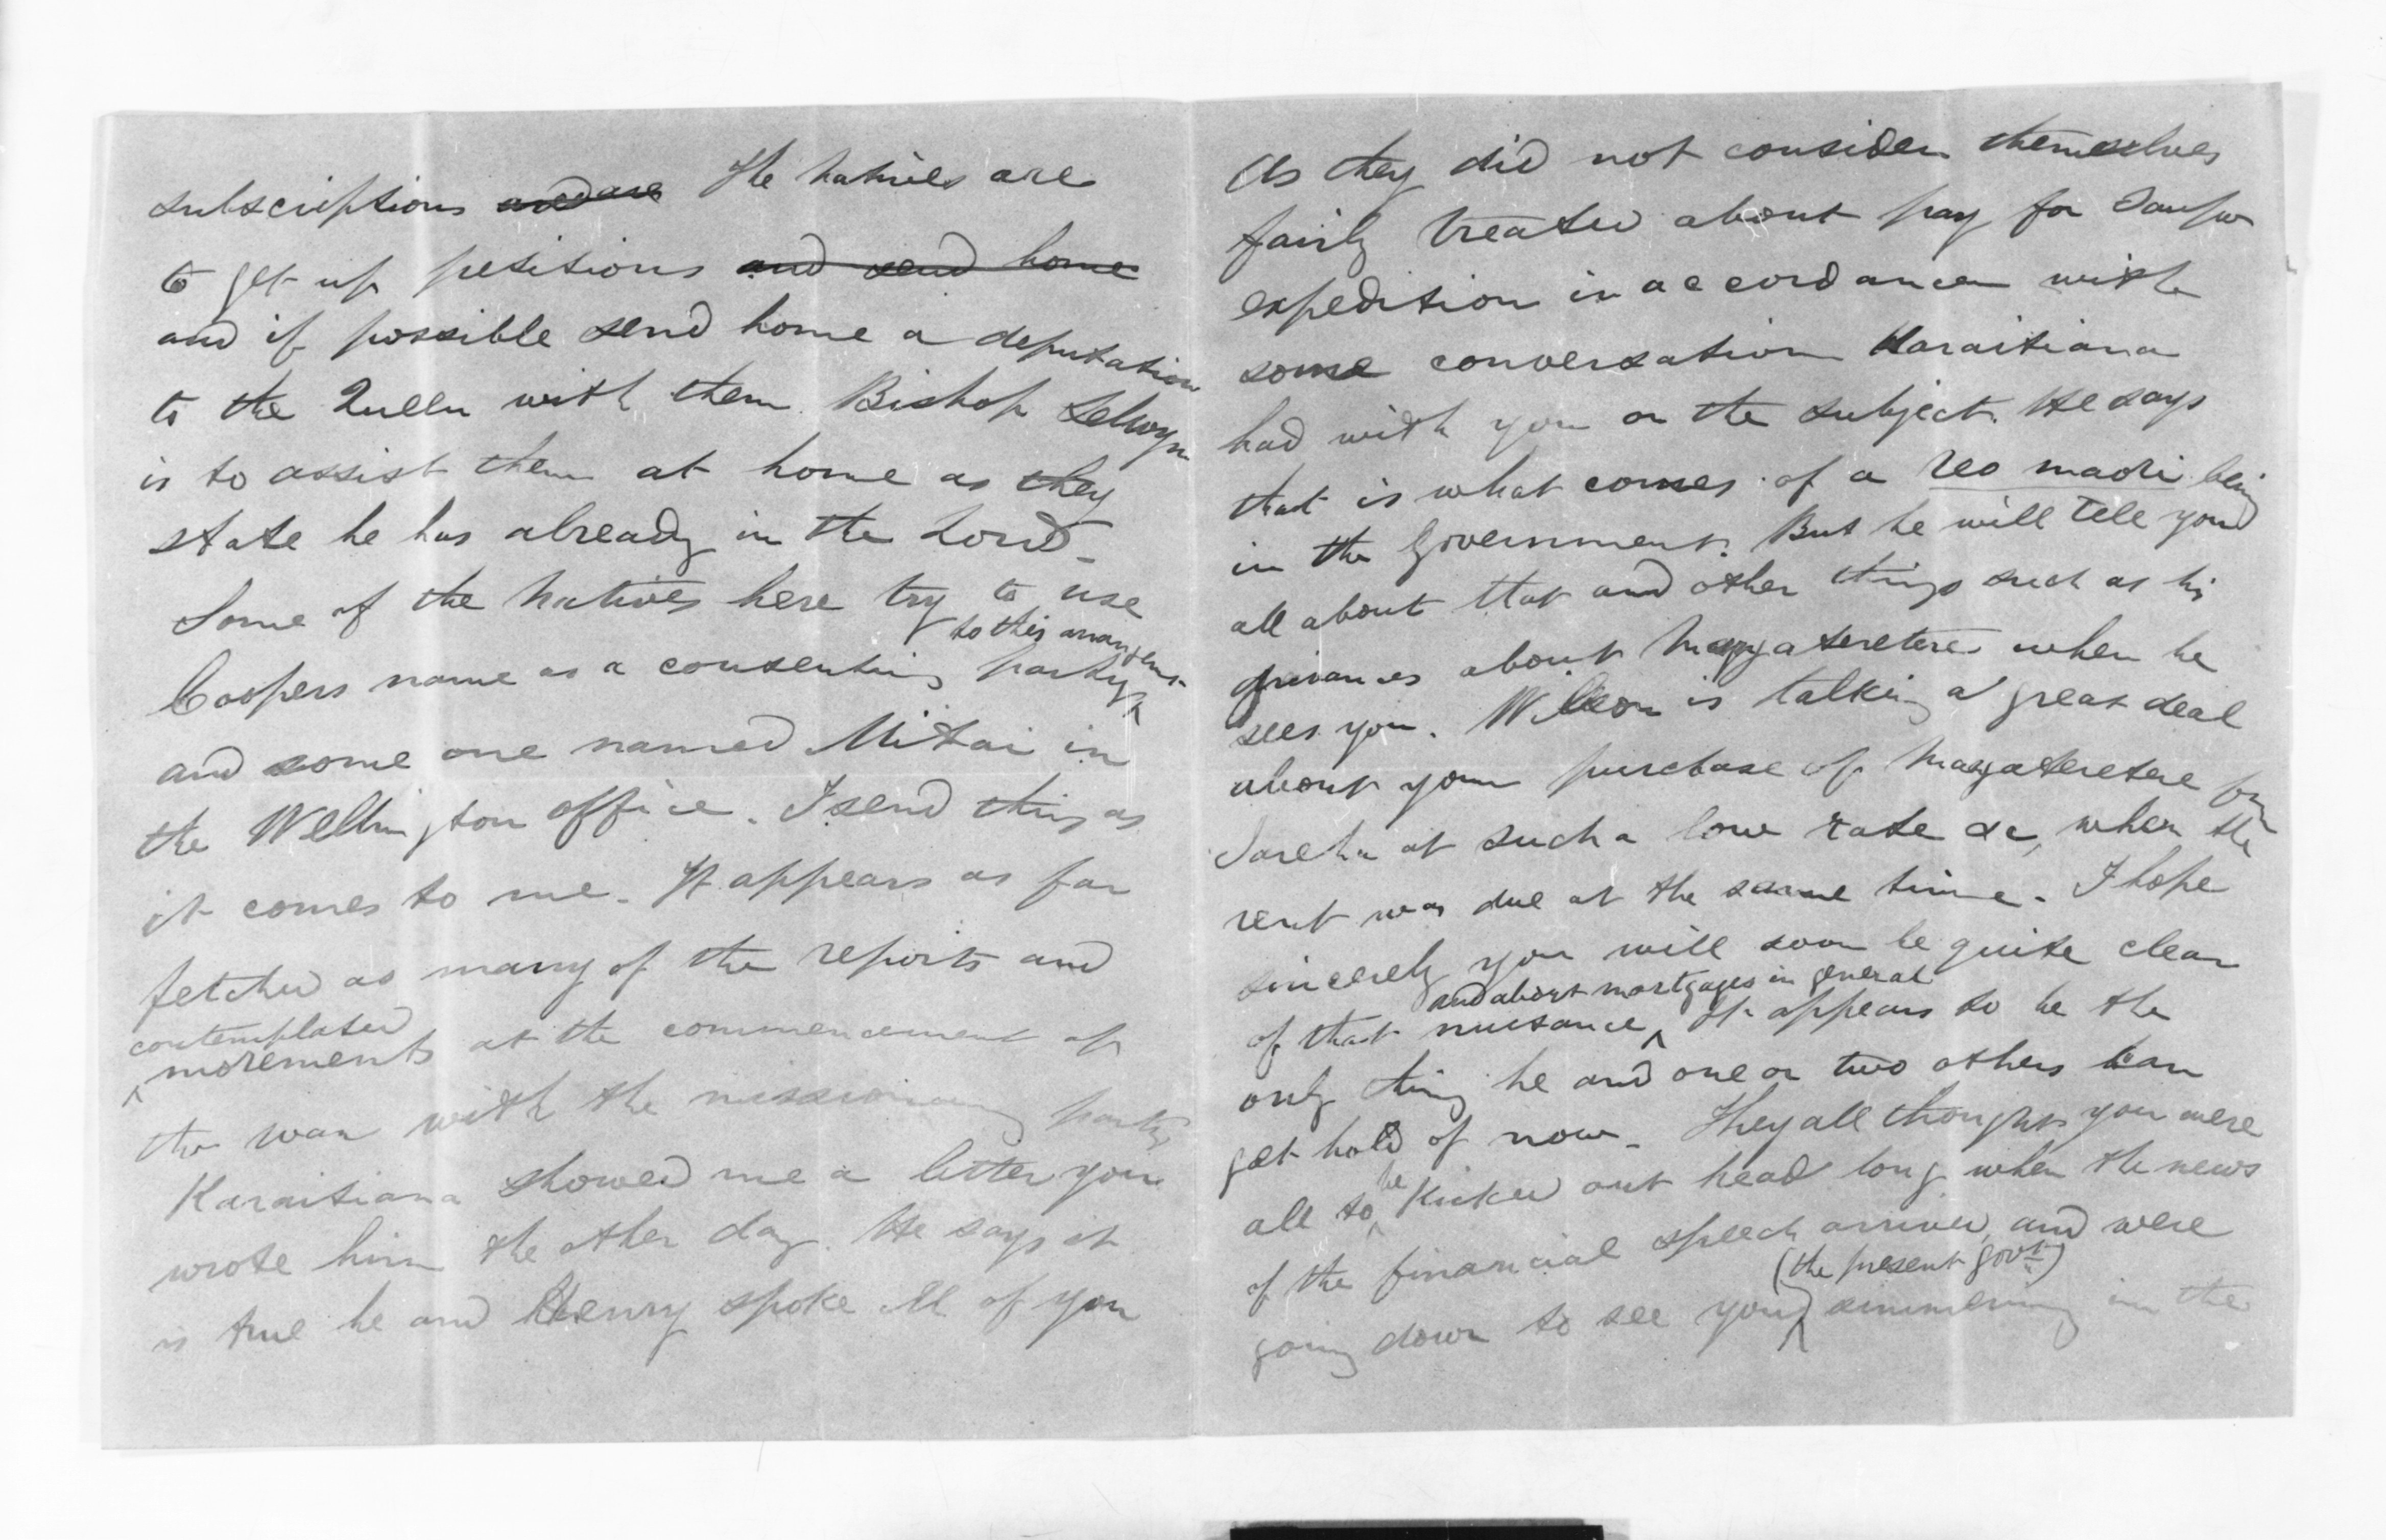 subscriptions and are The natives are
to get up petitions and send home
and if possible send home a deputation
to the Queen with them. Bishop Selwyn
is to assist them at home as they
state he has already in the Lords -
Some of the natives here try to use
to this arrangemt
Coopers name as a consenting party
and some one named Mitai in
the Wellington office. I send this as
it comes to me. It appears as far
fetched as many of the reports and
contemplated
movements at the commencement of
the war with the missionary party
Karaitiana showed me a letter you
wrote him the other day. He says it
is true he and Henry spoke ill of you
As they did not consider themselves
fairly treated about pay for Taupo
expedition in accordance with
some conversation Karaitiana
had with you on the subject. He says
that is what comes of a reo maori being
in the Government. But he will tell you
all about that and other things such as his
grivances about Mangateretere when he
sees you. Wilson is talking a great deal
about your purchase of Mangateretere from
Tareha at such a low rate &c, when the
rent was due at the same time. I hope
sincerely you will soon be quite clear
and about mortgages in general
of that nuisance It appears to be the
only thing he and one or two others can
get hold of now - They all thought you were
all to be kicked out head long when the news
of the financial speech arrived, and were
(the present govt)
going down to see you simmering in the